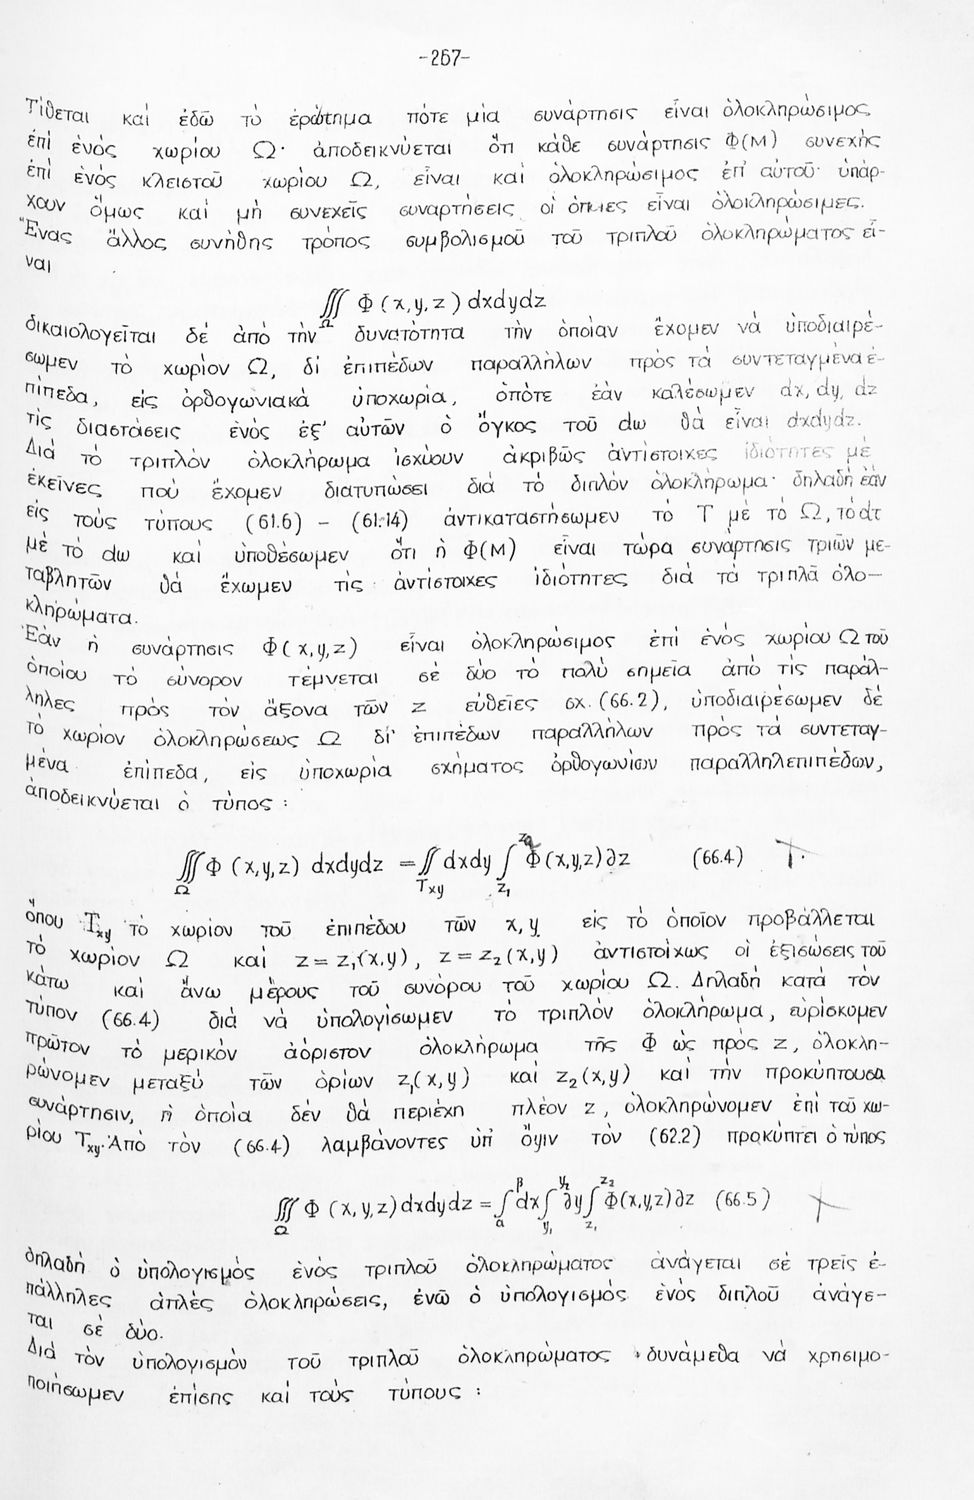 -267-
Τίθεται καί ἐδῶ τό ἐρώτημα πότε μία συνάρτησις εἶναι ὁλοκληρώσιμος
ἐπί ἑνός χωρίου Ω· ἀποδεικνύεται ὅτι κάθε συνάρτησις Φ(Μ) συνεχής
ἐπί ἑνός κλειστοῦ χωρίου Ω, εἶναι καί ὁλοκληρώσιμος ἐπ' αὐτοῦ· ὑπάρ-
χουν ὅμως καί μή συνεχεῖς συναρτήσεις οἱ ὁποῖες εἶναι ὁλοκληρώσιμες.
Ἕνας ἄλλος συνήθης τρόπος συμβολισμοῦ τοῦ τριπλοῦ ὁλοκληρώματος εἶ-
ναι
∭_Ω Φ(x,y,z) dxdydz
δικαιολογεῖται δέ ἀπό τήν δυνατότητα τήν ὁποίαν ἔχομεν νά ὑποδιαιρέ-
σωμεν τό χωρίον Ω, δι' ἐπιπέδων παραλλήλων πρός τά συντεταγμένα ἐ-
πίπεδα, εἰς ὀρθογωνιακά ὑποχωρία, ὁπότε ἐάν καλέσωμεν dx, dy, dz
τίς διαστάσεις ἑνός ἐξ' αὐτῶν ὁ ὄγκος τοῦ dω θά εἶναι dxdydz.
Διά τό τριπλόν ὁλοκλήρωμα ἰσχύουν ἀκριβῶς ἀντίστοιχες ἰδιότητες μέ
ἐκεῖνες πού ἔχομεν διατυπώσει διά τό διπλόν ὁλοκλήρωμα· δηλαδή ἐάν
εἰς τούς τύπους (61.6) - (61.14) ἀντικαταστήσωμεν τό Τ μέ τό Ω, τό dτ
μέ τό dω καί ὑποθέσωμεν ὅτι ἡ Φ(Μ) εἶναι τώρα συνάρτησις τριῶν με-
ταβλητῶν θά ἔχωμεν τίς ἀντίστοιχες ἰδιότητες διά τά τριπλᾶ ὁλο-
κληρώματα.
Ἐάν ἡ συνάρτησις Φ(x,y,z) εἶναι ὁλοκληρώσιμος ἐπί ἑνός χωρίου Ω τοῦ
ὁποίου τό σύνορον τέμνεται σέ δύο τό πολύ σημεῖα ἀπό τίς παράλ-
ληλες πρός τόν ἄξονα τῶν z εὐθεῖες σχ. (66.2), ὑποδιαιρέσωμεν δέ
τό χωρίον ὁλοκληρώσεως Ω δι' ἐπιπέδων παραλλήλων πρός τά συντεταγ-
μένα ἐπίπεδα, εἰς ὑποχωρία σχήματος ὀρθογωνίων παραλληλεπιπέδων,
ἀποδεικνύεται ὁ τύπος :
∭_Ω Φ(x,y,z) dxdydz = ∬_{Txy} dxdy ∫_{z₁}^{z₂} Φ(x,y,z)∂z (66.4)
ὅπου Txy τό χωρίον τοῦ ἐπιπέδου τῶν x,y εἰς τό ὁποῖον προβάλλεται
τό χωρίον Ω καί z=z₁(x,y), z=z₂(x,y) ἀντιστοίχως οἱ ἐξισώσεις τοῦ
κάτω καί ἄνω μέρους τοῦ συνόρου τοῦ χωρίου Ω. Δηλαδή κατά τόν
τύπον (66.4) διά νά ὑπολογίσωμεν τό τριπλόν ὁλοκλήρωμα, εὑρίσκομεν
πρῶτον τό μερικόν ἀόριστον ὁλοκλήρωμα τῆς Φ ὡς πρός z, ὁλοκλη-
ρώνομεν μεταξύ τῶν ὁρίων z₁(x,y) καί z₂(x,y) καί τήν προκύπτουσα
συνάρτησιν, ἡ ὁποία δέν θά περιέχη πλέον z, ὁλοκληρώνομεν ἐπί τοῦ χω-
ρίου Txy. Ἀπό τόν (66.4) λαμβάνοντες ὑπ' ὄψιν τόν (62.2) προκύπτει ὁ τύπος
∭_Ω Φ(x,y,z)dxdydz = ∫_α^β dx ∫_{y₁}^{y₂} ∂y ∫_{z₁}^{z₂} Φ(x,y,z)∂z (66.5)
δηλαδή ὁ ὑπολογισμός ἑνός τριπλοῦ ὁλοκληρώματος ἀνάγεται σέ τρεῖς ἐ-
πάλληλες ἁπλές ὁλοκληρώσεις, ἐνῶ ὁ ὑπολογισμός ἑνός διπλοῦ ἀνάγε-
ται σέ δύο.
Διά τόν ὑπολογισμόν τοῦ τριπλοῦ ὁλοκληρώματος δυνάμεθα νά χρησιμο-
ποιήσωμεν ἐπίσης καί τούς τύπους :